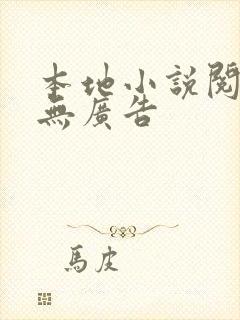 本地小說閱
無廣告
馬皮